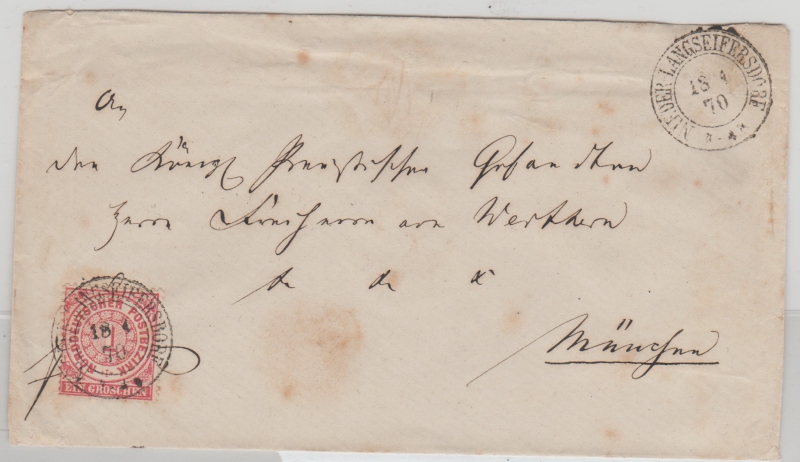 NIEDER LANGSEIFERSDORF
18 4
70
An
den Königl Preußischen Gesandten
Herrn Freiherrn von Werthern
München
LANGSEIFERSDORF
18 4
70
NORDDEUTSCHER POSTBEZIRK
1
EIN GROSCHEN